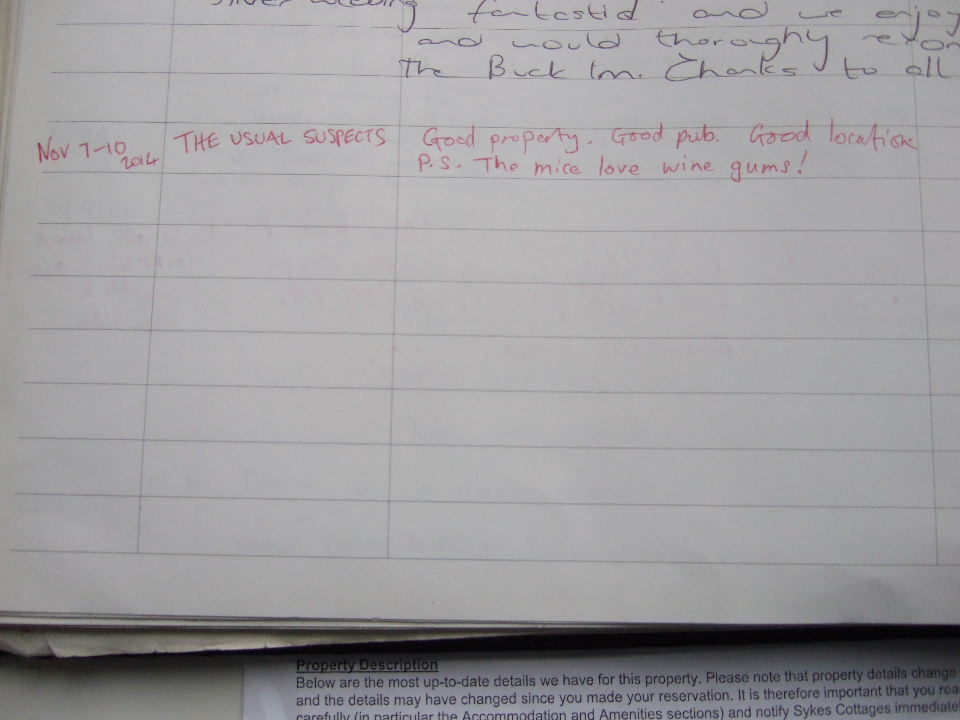 fantastic and we enjoy
and would thoroughy
The Buck Inn. Thanks to all
Nov 7-10 2014 THE USUAL SUSPECTS Good property. Good pub. Good location
P.S. The mice love wine gums!
Property Description
Below are the most up-to-date details we have for this property. Please note that property details change
and the details may have changed since you made your reservation. It is therefore important that you rea
carefully (in particular the Accommodation and Amenities sections) and notify Sykes Cottages immediate